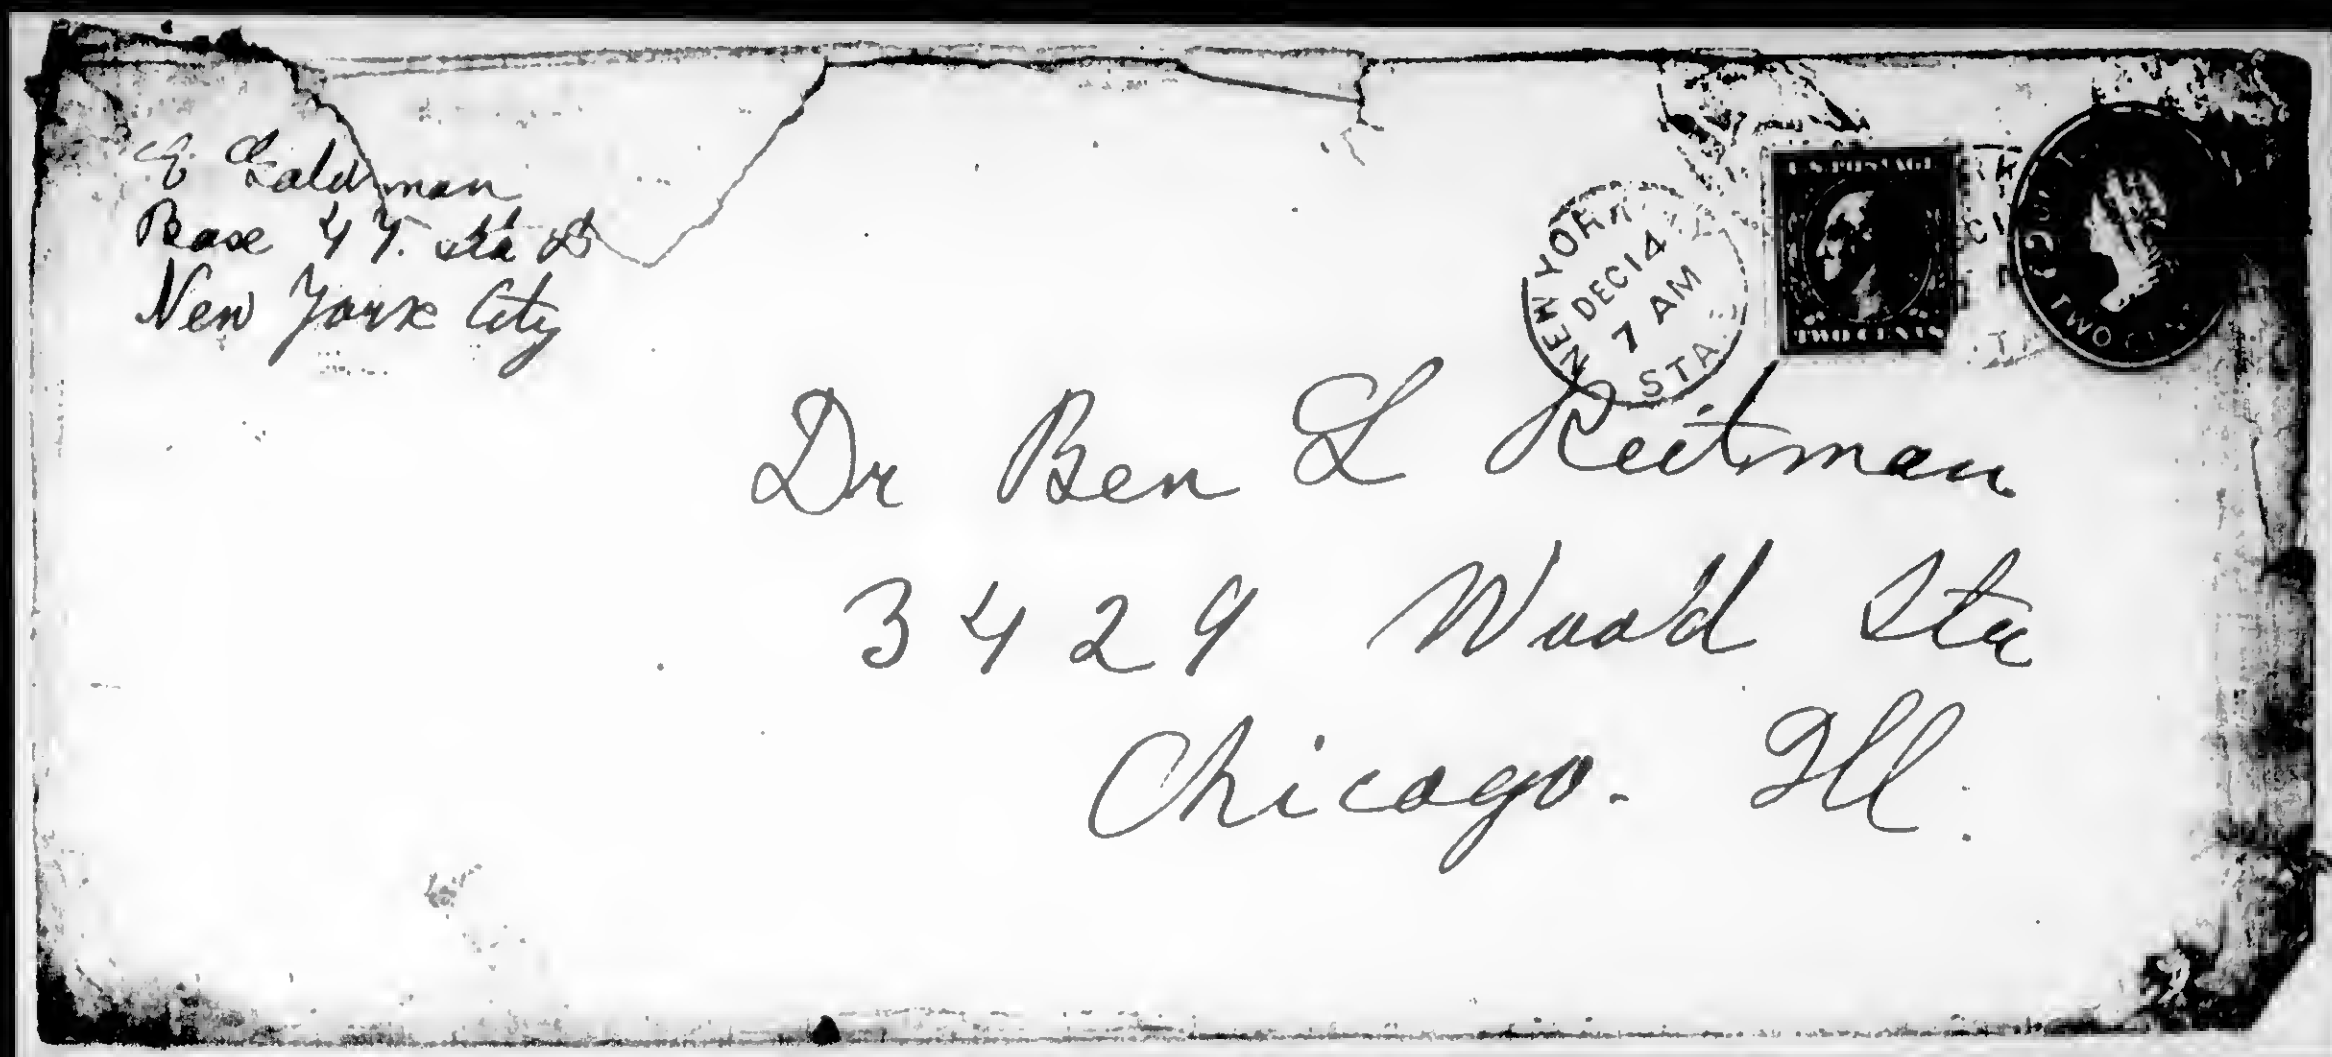 E Goldman
Box 47. Sta D
New York City
NEW YORK
DEC 14
7 AM
STA.
U.S. POSTAGE
TWO CENTS
TWO CENTS
Dr Ben L Reitman
3429 Wood Str
Chicago. Ill.